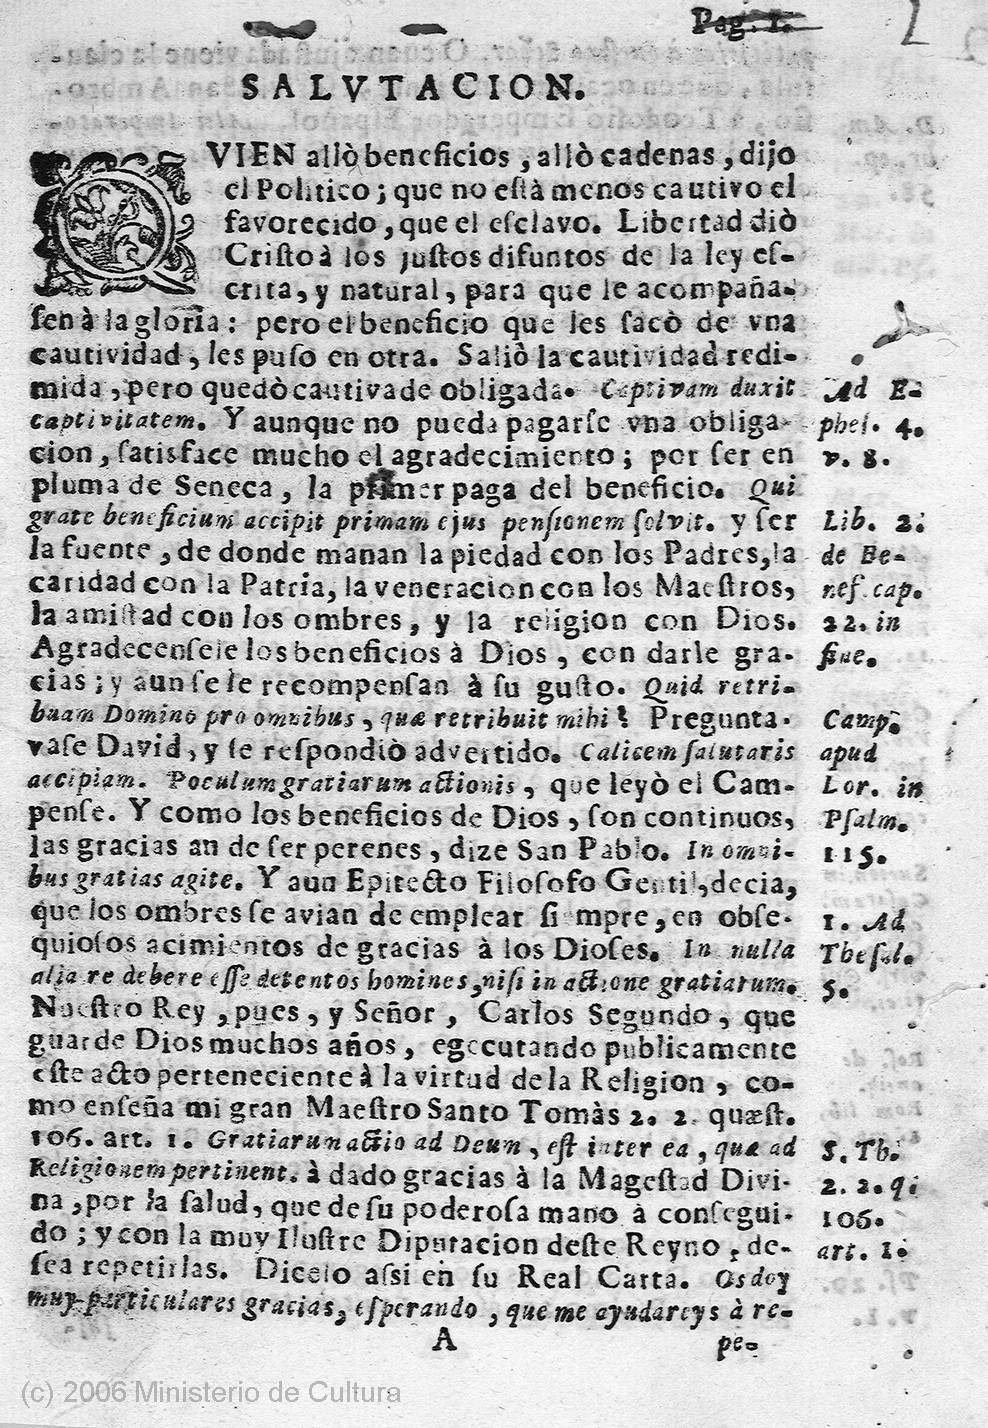 Pag. 1.
SALVTACION.
QVIEN allò beneficios, allò cadenas, dijo
el Politico; que no eſtà menos cautivo el
favorecido, que el eſclavo. Libertad diò
Criſto à los juſtos difuntos de la ley eſ-
crita, y natural, para que le acompaña-
ſen à la gloria: pero el beneficio que les ſacò de vna
cautividad, les puſo en otra. Saliò la cautividad redi-
mida, pero quedò cautiva de obligada. Captivam duxit
captivitatem. Y aunque no pueda pagarſe vna obliga-
cion, ſatisface mucho el agradecimiento; por ſer en
pluma de Seneca, la primer paga del beneficio. Qui
grate beneficium accipit primam ejus penſionem ſolvit. y ſer
la fuente, de donde manan la piedad con los Padres, la
caridad con la Patria, la veneracion con los Maeſtros,
la amiſtad con los ombres, y la religion con Dios.
Agradecenſele los beneficios à Dios, con darle gra-
cias; y aun ſe le recompenſan à ſu guſto. Quid retri-
buam Domino pro omnibus, quæ retribuit mihi? Pregunta-
vaſe David, y ſe reſpondiò advertido. Calicem ſalutaris
accipiam. Poculum gratiarum actionis, que leyò el Cam-
penſe. Y como los beneficios de Dios, ſon continuos,
las gracias an de ſer perenes, dize San Pablo. In omni-
bus gratias agite. Y aun Epitecto Filoſofo Gentil, decia,
que los ombres ſe avian de emplear ſiempre, en obſe-
quioſos acimientos de gracias à los Dioſes. In nulla
alia re debere eſſe detentos homines, niſi in actione gratiarum.
Nueſtro Rey, pues, y Señor, Carlos Segundo, que
guarde Dios muchos años, egecutando publicamente
eſte acto perteneciente à la virtud de la Religion, co-
mo enſeña mi gran Maeſtro Santo Tomàs 2. 2. quæſt.
106. art. 1. Gratiarum actio ad Deum, eſt inter ea, quæ ad
Religionem pertinent. à dado gracias à la Mageſtad Divi-
na, por la ſalud, que de ſu poderoſa mano à conſegui-
do; y con la muy Iluſtre Diputacion deſte Reyno, de-
ſea repetirlas. Dicelo aſsi en ſu Real Carta. Os doy
muy particulares gracias, eſperando, que me ayudareys à re-
A
pe-
Ad E-
pheſ. 4.
v. 8.
Lib. 2.
de Be-
neſ. cap.
22. in
fine.
Camp̄.
apud
Lor. in
Pſalm.
115.
1. Ad
Theſal.
5.
S. Th.
2. 2. q.
106.
art. 1.
(c) 2006 Ministerio de Cultura